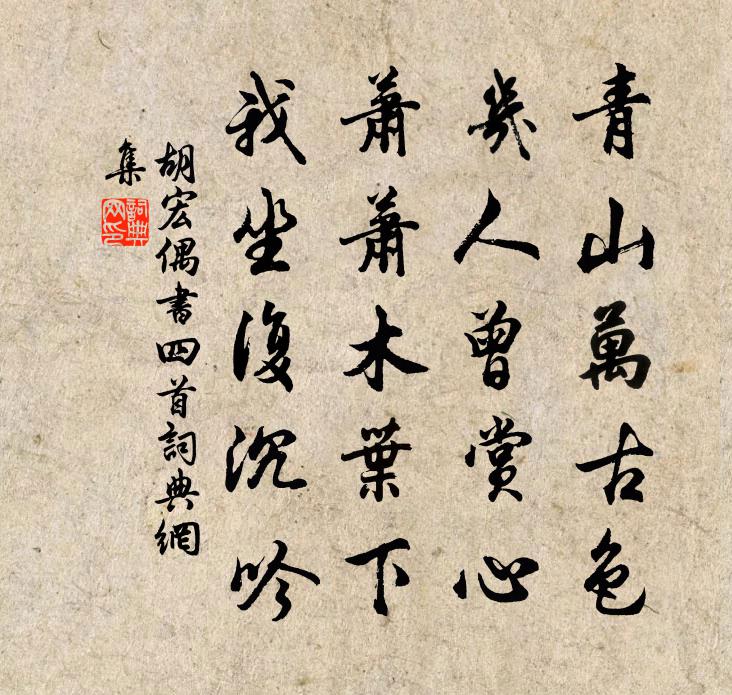 青山萬古色
幾人曾賞心
蕭蕭木葉下
我坐復沉吟
胡宏偶書四首詞典網
集
詞典
网印